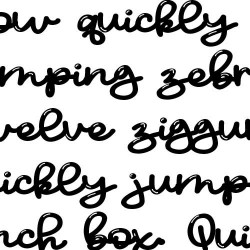 ow quickly
mping zebr
welve ziggur
ickly jump
nch box. Qui